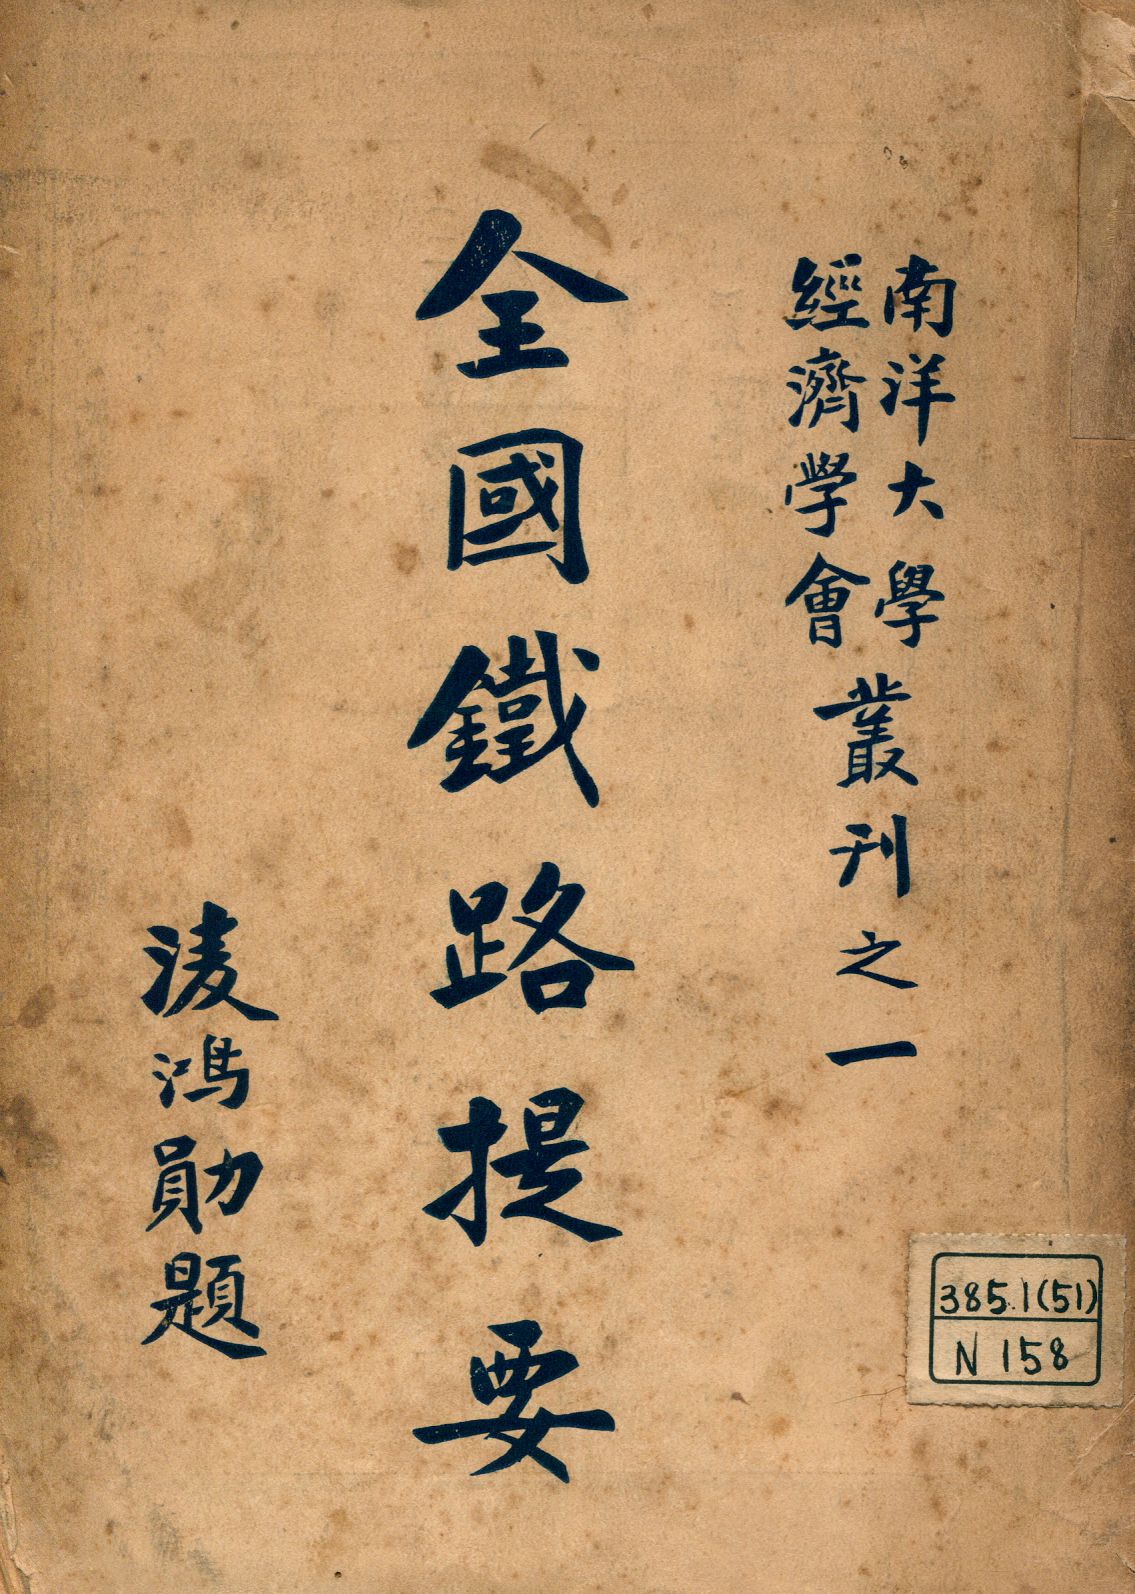 南洋大學
經濟學會
叢刊之一
全國鐵路提要
凌鴻勛題
385.1(51)
N 158